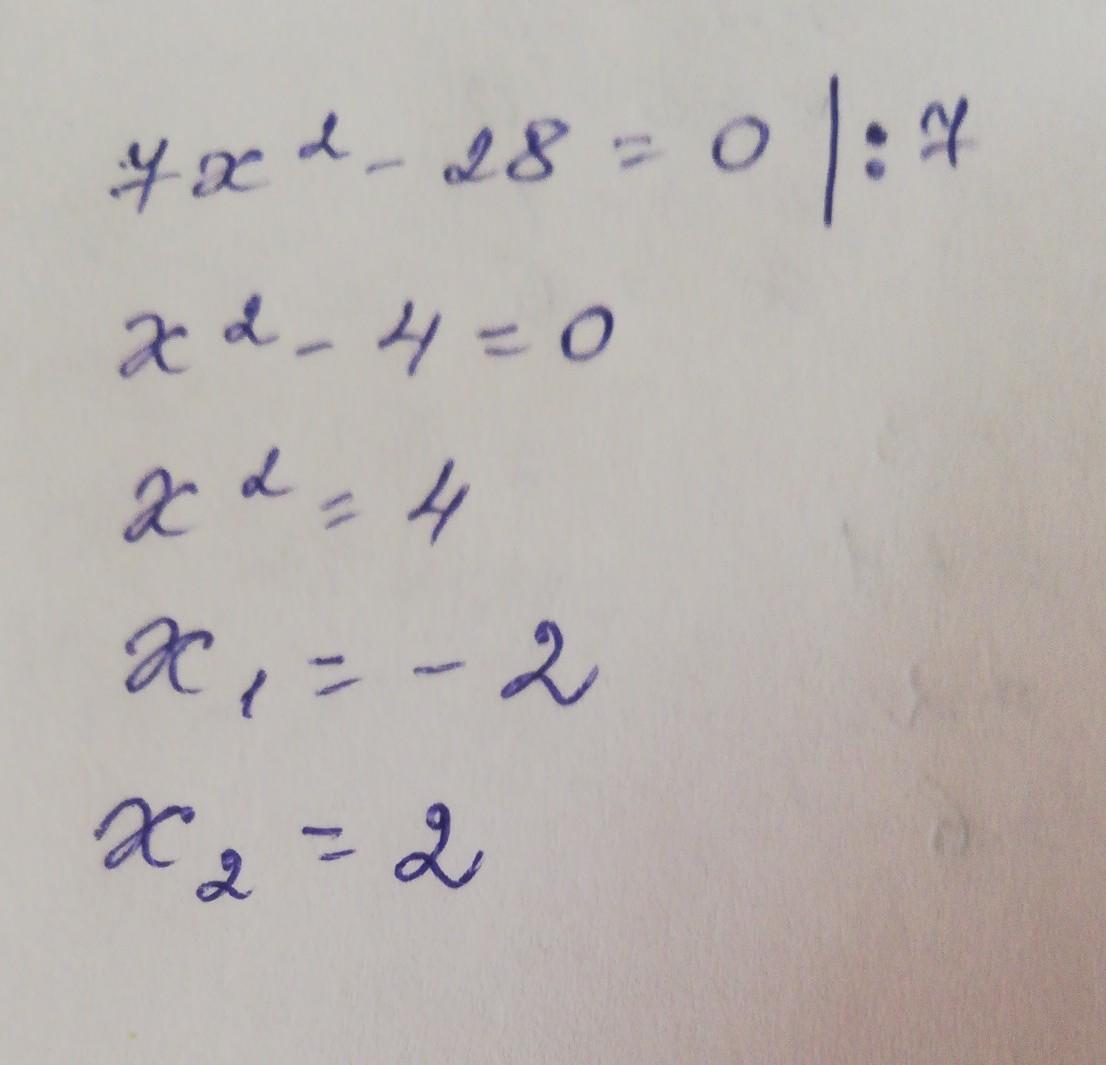 7x² - 28 = 0 |:7
x² - 4 = 0
x² = 4
x₁ = - 2
x₂ = 2